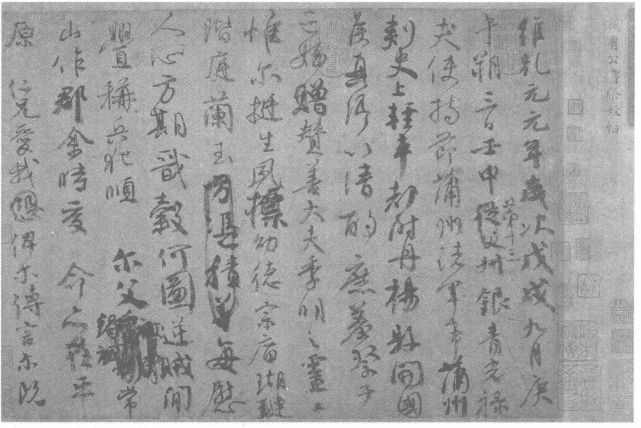 維乾元元年歲次戊戌九月庚
午朔三日壬申第十三從父叔銀青光祿
夫使持節蒲州諸軍事蒲州
刺史上輕車都尉丹楊縣開國
侯真卿以清酌庶羞祭于
亡姪贈贊善大夫季明之靈曰
惟爾挺生夙標幼德宗廟瑚璉
階庭蘭玉方憑積善每慰
人心方期戩穀何圖逆賊閒
釁稱兵犯順 爾父竭誠常
山作郡余時受命亦在平
原仁兄愛我恐俾爾傳言爾既